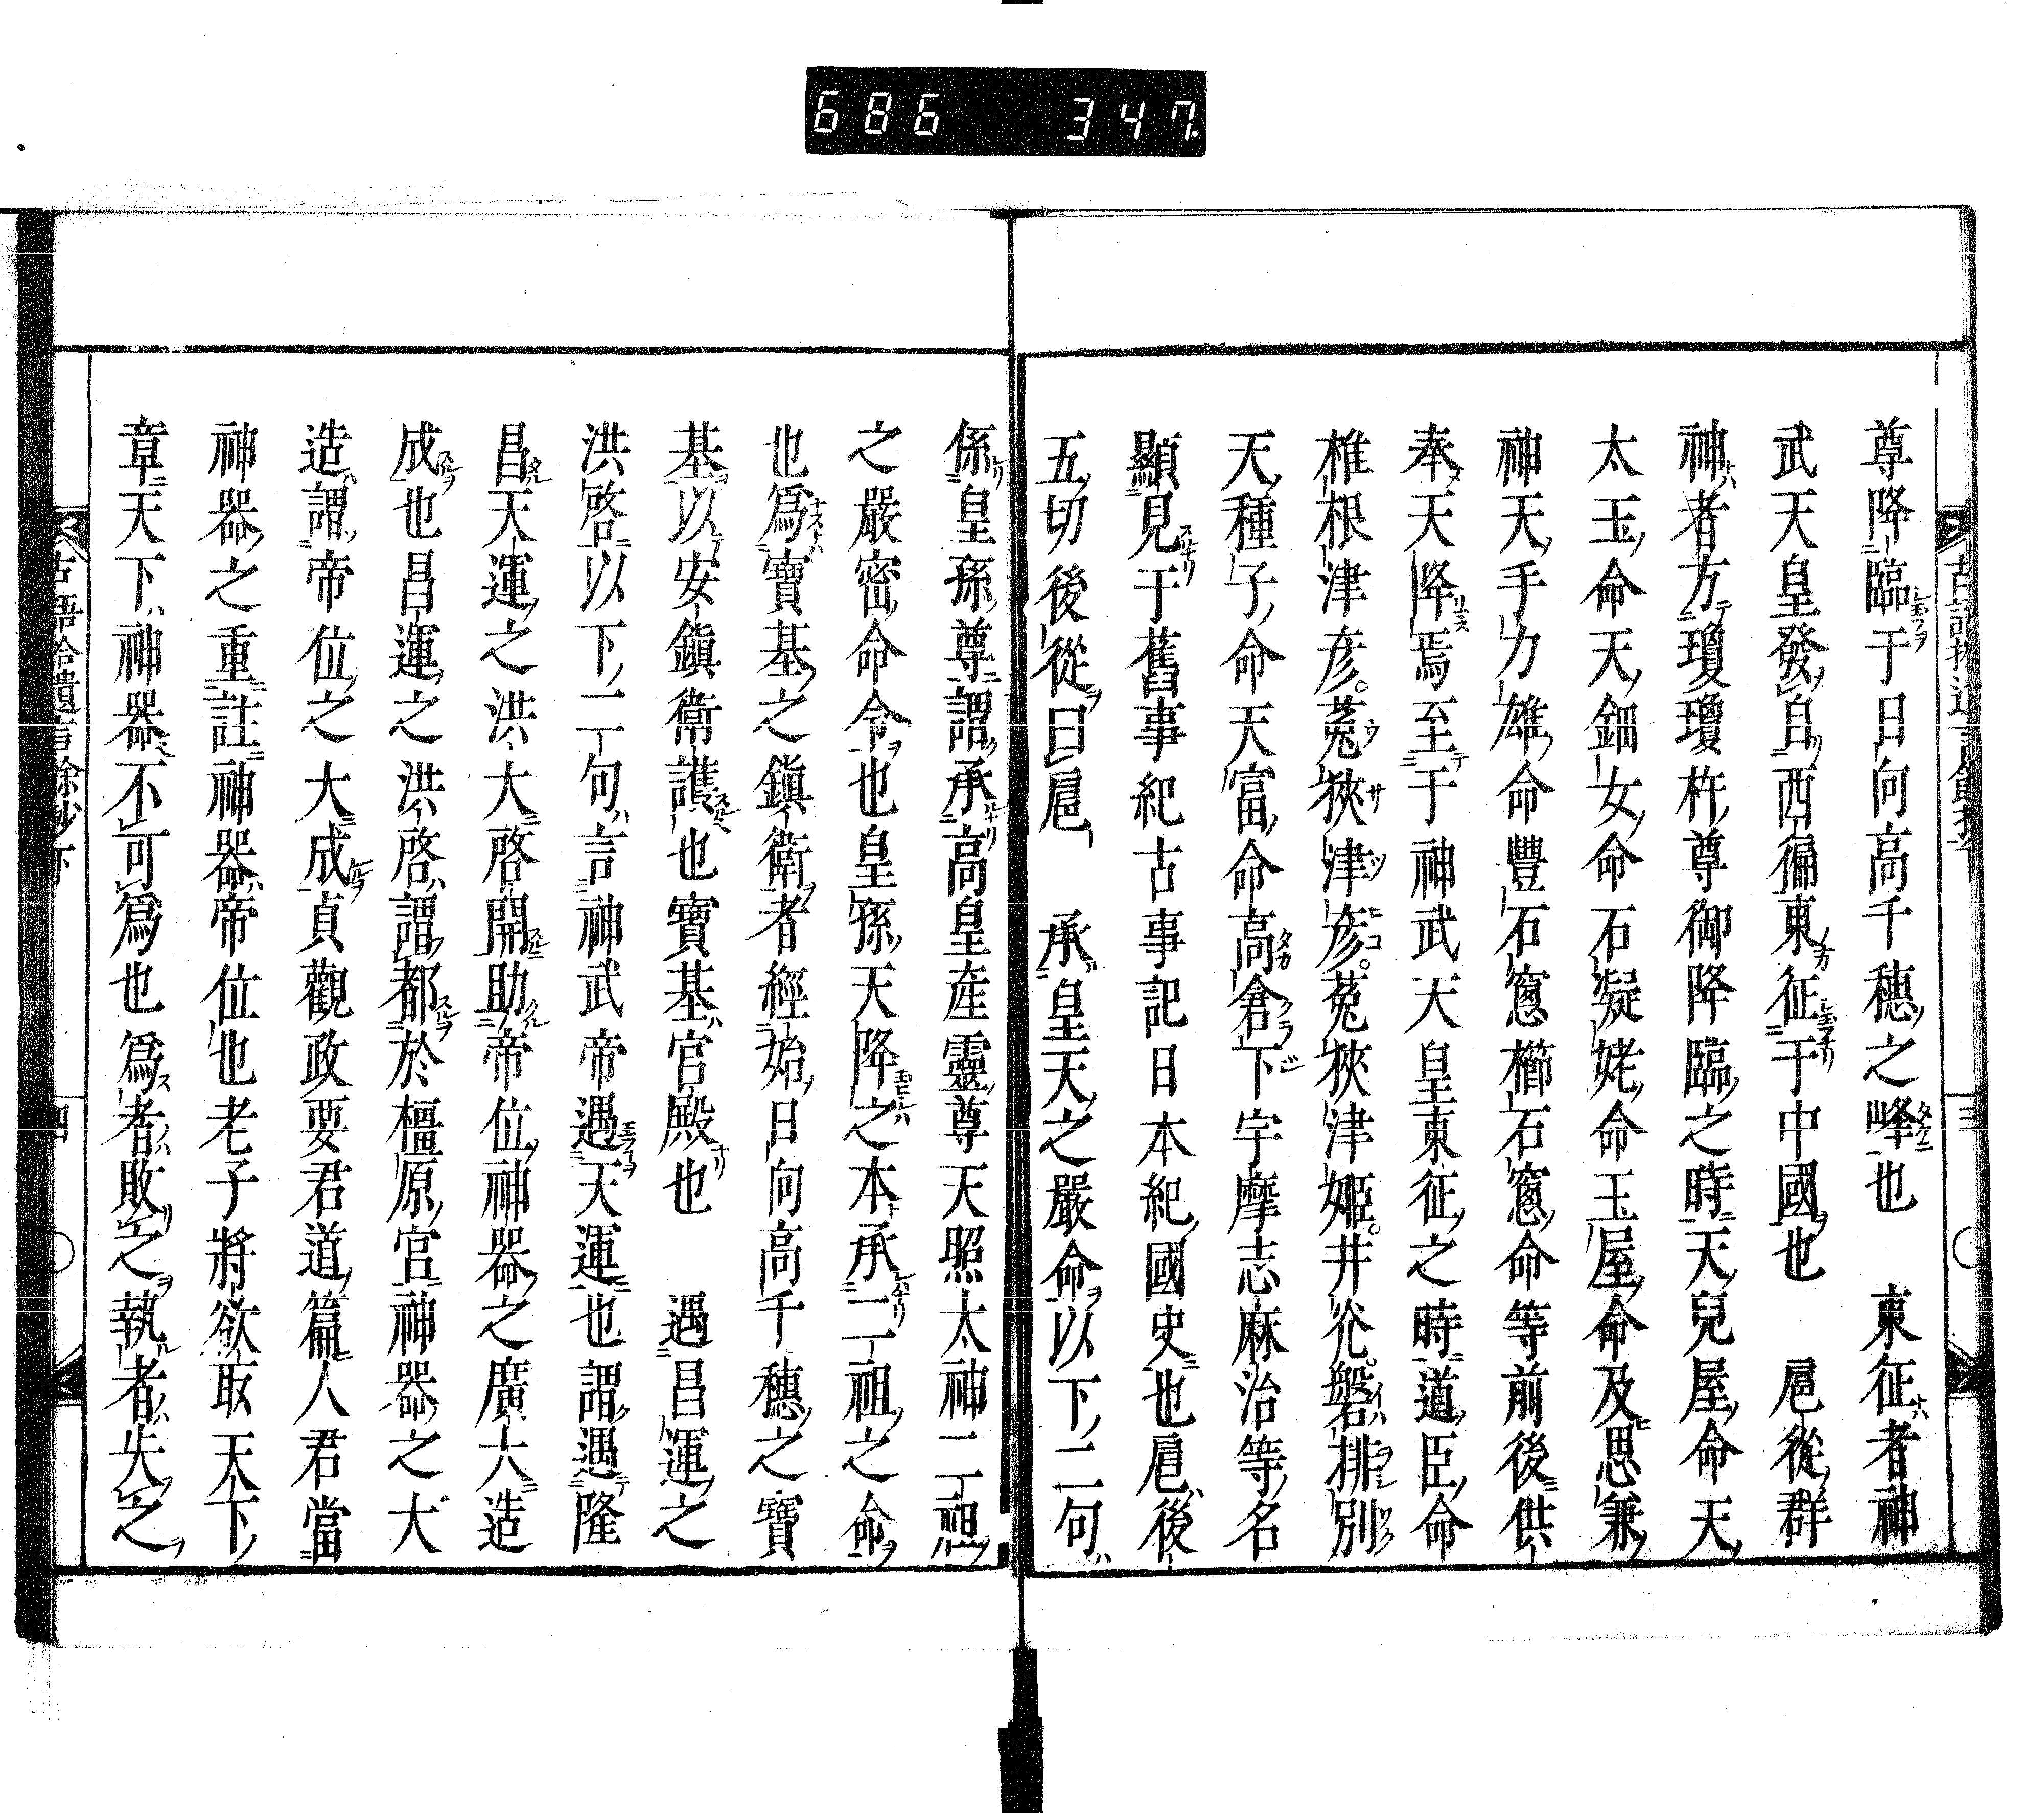 686 347
尊降臨于日向高千穗之峰也 東征者神
武天皇發自西偏東征于中國也 扈從群
神者方瓊瓊杵尊御降臨之時天兒屋命天
太玉命天鈿女命石凝姥命玉屋命及思兼
神天手力雄命豐石窻櫛石窻命等前後供
奉天降焉至于神武天皇東征之時道臣命
椎根津彥菟狹津彥菟狹津姬井光磐排別
天種子命天富命高倉下宇摩志麻治等名
顯見于舊事紀古事記日本紀國史也扈後
五切後從曰扈 承皇天之嚴命以下二句
係皇孫尊謂承高皇産靈尊天照太神二祖
之嚴密命令也皇孫天降之本承二祖之命
也爲寶基之鎭衛者經始日向高千穗之寶
基以安鎭衛護也寶基官殿也 遇昌運之
洪啓以下二句言神武帝遇天運也謂遇隆
昌天運之洪大啓開助帝位神器之廣大造
成也昌運之洪啓謂都於橿原宮神器之大
造謂帝位之大成貞觀政要君道篇人君當
神器之重註神器帝位也老子將欲取天下
章天下神器不可爲也爲者敗之執者失之
古語拾遺言餘抄下
四
三